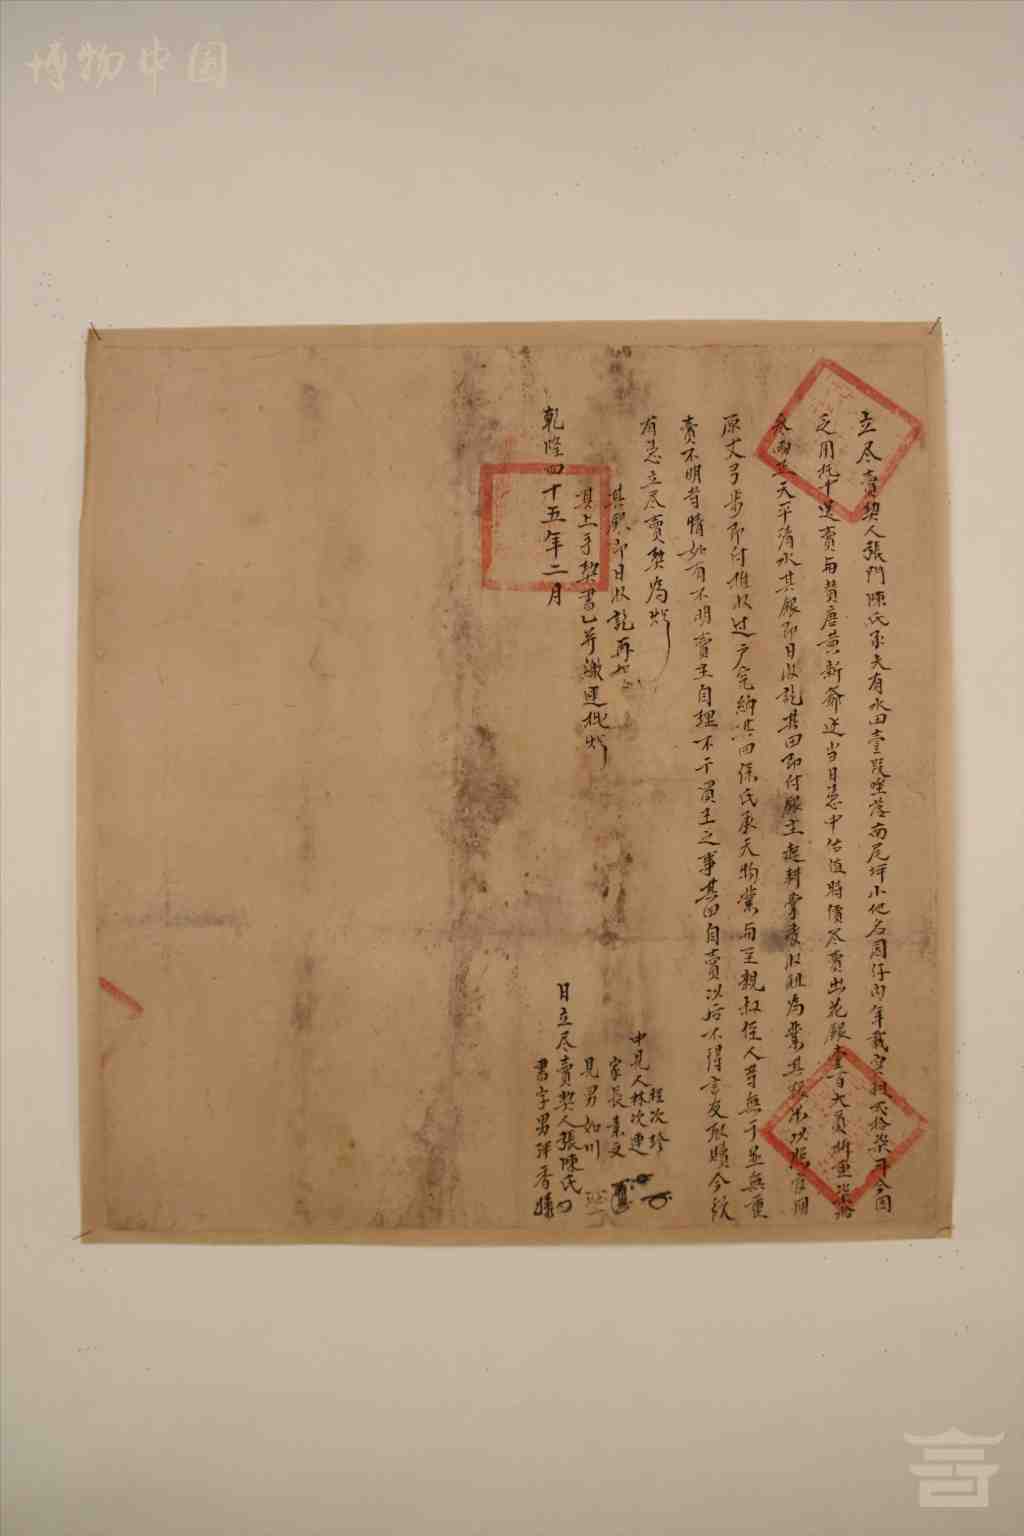 博物中国
立尽賣契人張門陳氏承夫有水田壹段坐落南尾坪小地名園仔內年載室租貳拾柒石今因
乏用托中送賣與黃唐黃新爺边当日憑中估值時價尽賣出花銀壹百大員折重柒拾
叁両正天平清水其銀即日收訖其田即付銀主起耕掌麦收租為業其銀
原丈弓步即付推收过户完納其田係氏承夫物業與至親叔侄人等無干並無重
賣不明等情如有不明賣主自理不干買主之事其田自賣以后不得言及取贖今欲
有憑立尽賣契為炤
其銀即日收訖再炤
其上手契書乙并繳連批炤
乾隆四十五年二月 日立尽賣契人張陳氏
程次珍
中見人林次連
家長素文
見男如川
書字男洋香